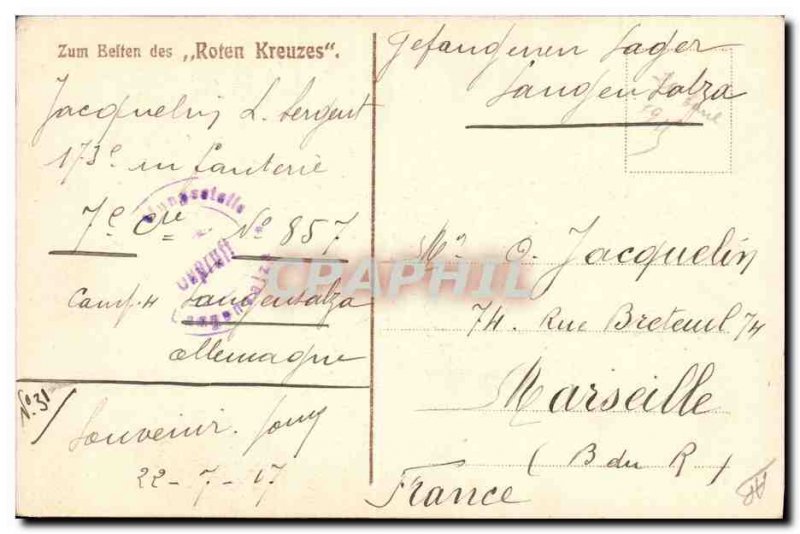 Zum Besten des „Roten Kreuzes“.
Jacquelin L. Sergent
173e infanterie
7e Cie N° 857
Camp. Langensalza
allemagne
N°. 31
Souvenir.
22-7-17
Geprüft
Gefangenen Lager
Langensalza
Mr O. Jacquelin
74. Rue Breteuil 74
Marseille
( B du R )
France
CPAPHIL